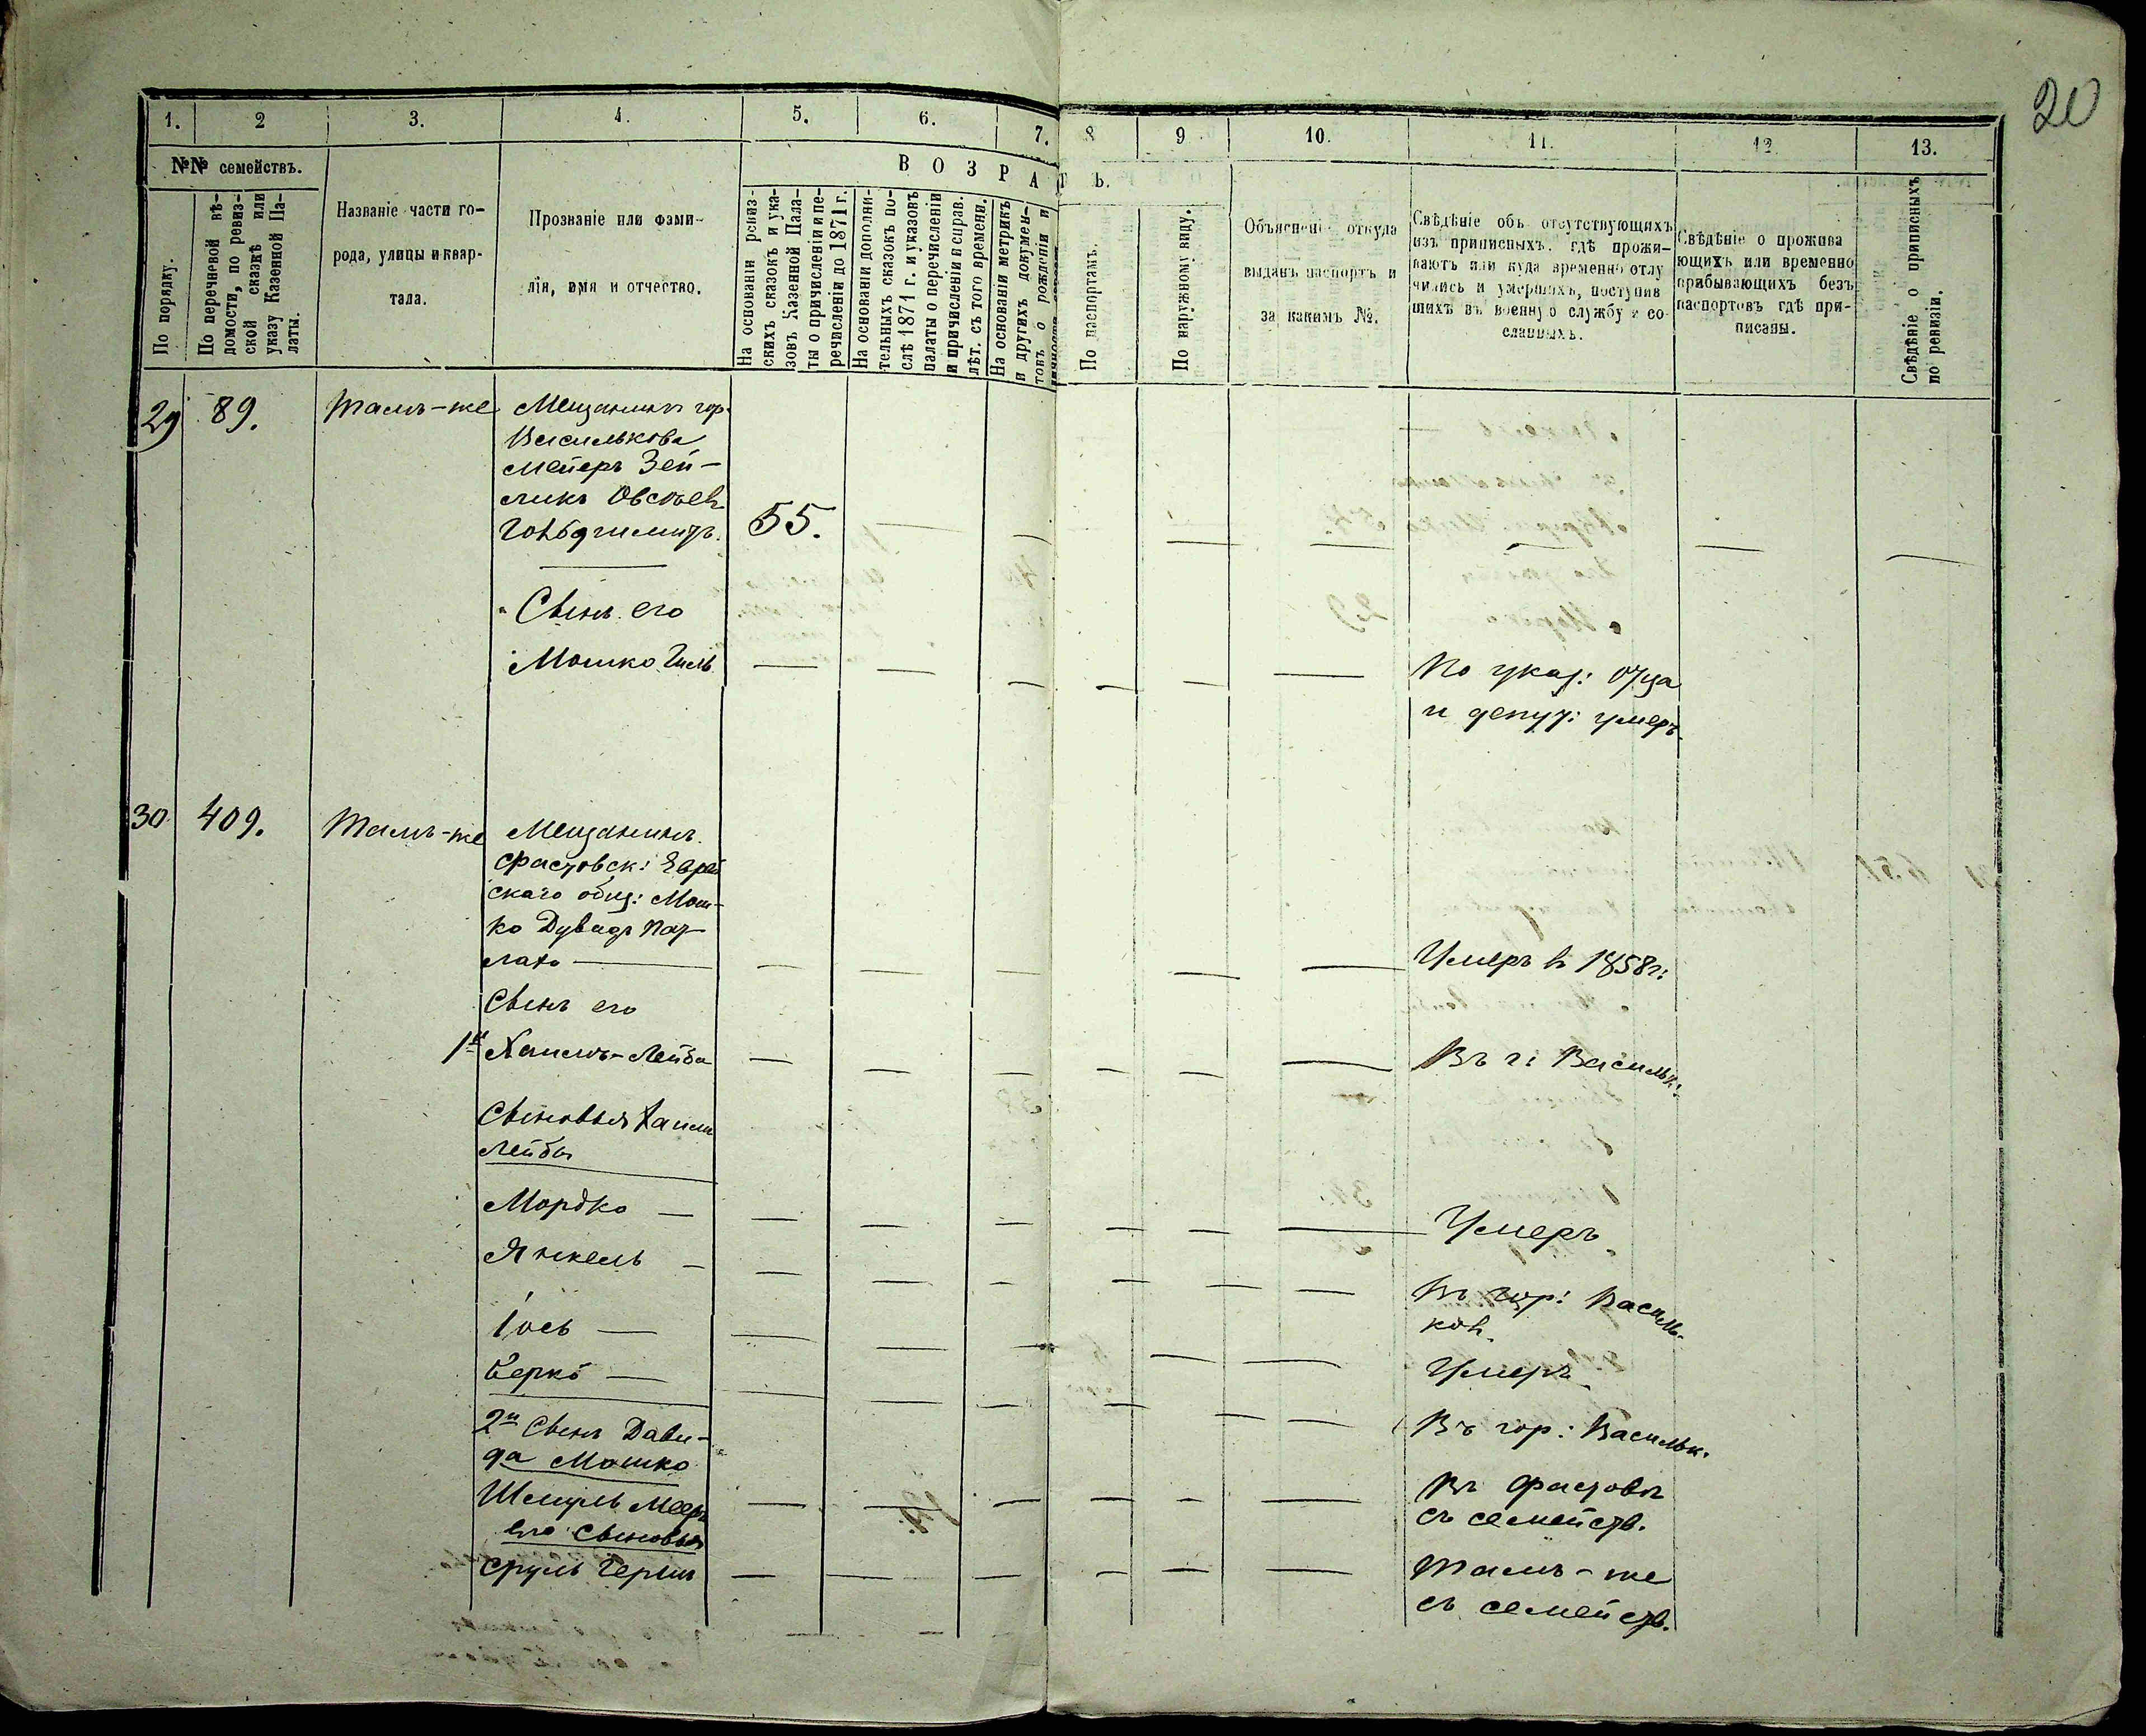 20
1. 2 3. 4. 5. 6. 7. 8 9 10. 11. 12 13.
№№ семействъ.
По порядку.
По перечневой вѣ-
домости, по ревиз-
ской сказкѣ или
указу Казенной Па-
латы.
Названіе части го-
рода, улицы и квар-
тала.
Прозваніе или фами-
лія, имя и отчество.
ВОЗРАСТЪ.
На основаніи ревиз-
скихъ сказокъ и ука-
зовъ Казенной Пала-
ты о причисленіи и пе-
речисленіи до 1871 г.
На основаніи дополни-
тельныхъ сказокъ по-
слѣ 1871 г. и указовъ
палаты о перечисленіи
и причисленіи и справ.
лѣт. съ того времени.
На основаніи метрикъ
и другихъ докумен-
товъ о рожденіи и
По паспортамъ.
По наружному виду.
Объясненіе откуда
выданъ паспортъ и
за какимъ №.
Свѣдѣніе объ отсутствующихъ
изъ приписныхъ. гдѣ прожи-
ваютъ или куда временно отлу
чились и умершихъ, поступив
шихъ въ военную службу и со
сланныхъ.
Свѣдѣніе о прожива
ющихъ или временно
прибывающихъ безъ
паспортовъ гдѣ при-
писаны.
Свѣдѣніе о приписныхъ
по ревизіи.
29 89. Тамъ-же Мещанинъ гор.
Василькова
Мейеръ Зей-
ликъ Овсѣев
Гольдшмитъ. 55.
Сынъ его
Мошко Гиль По указ: отца
и депут: умеръ
30 409. Тамъ-же Мещанинъ
Фастовск: Еврей
скаго общ: Мош-
ко Дувидъ Пар
лахъ Умеръ в 1858 г:
Сынъ его
1й Хаимъ-Лейба Въ г: Васильк:
Сыновья Хаима
Лейбы
Мордко Умеръ
Янкель Въ гор: Василь-
ков.
Іось Умеръ
Берко Въ гор: Васильк.
2й Сынъ Дави-
да Мошко
Шмуль Меер Въ Фастовѣ
съ семейств.
его сыновья
Сруль Герш Тамъ-же
съ семейств.